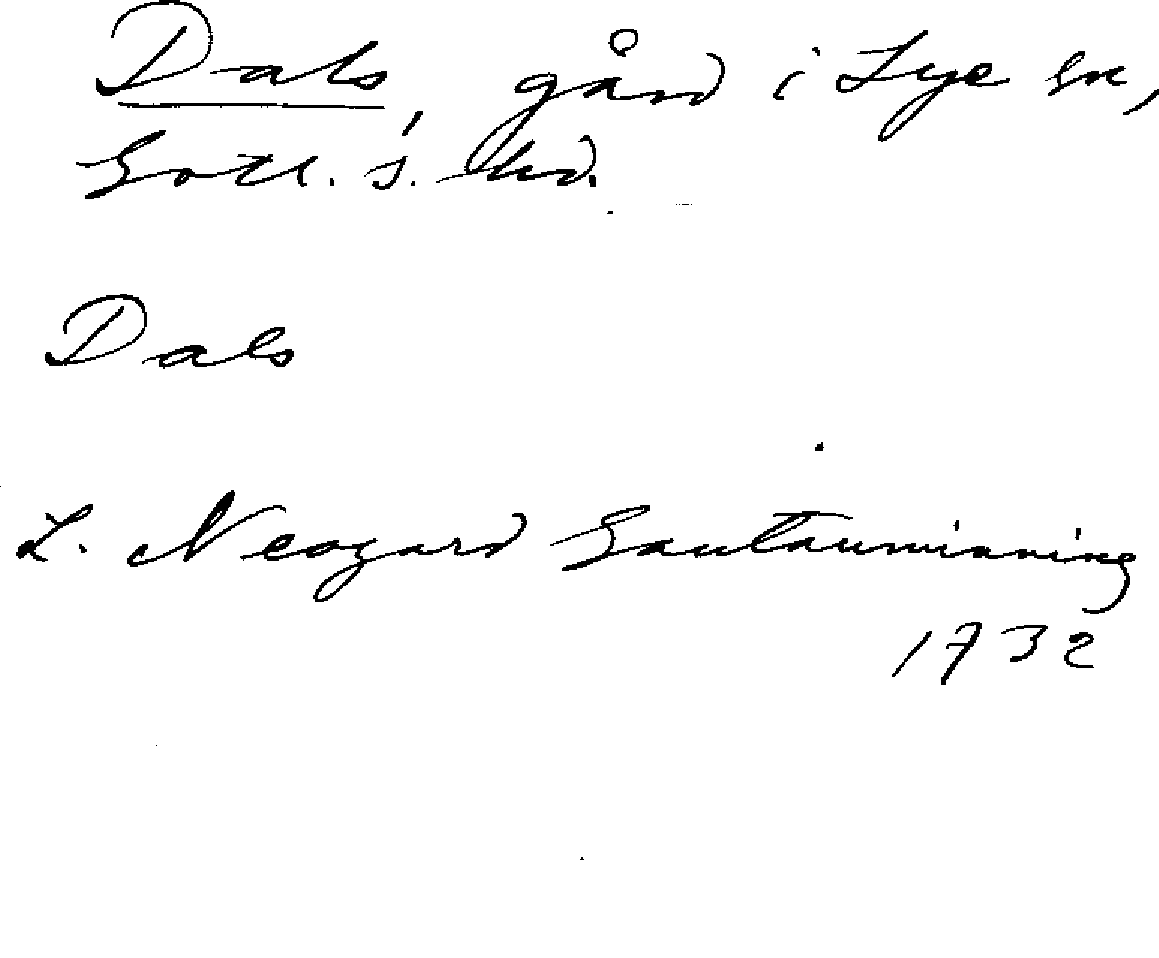 Dals, gård i Lye sn,
Gotl. s. hd.
Dals
L. Neogard Gautauminning
1732